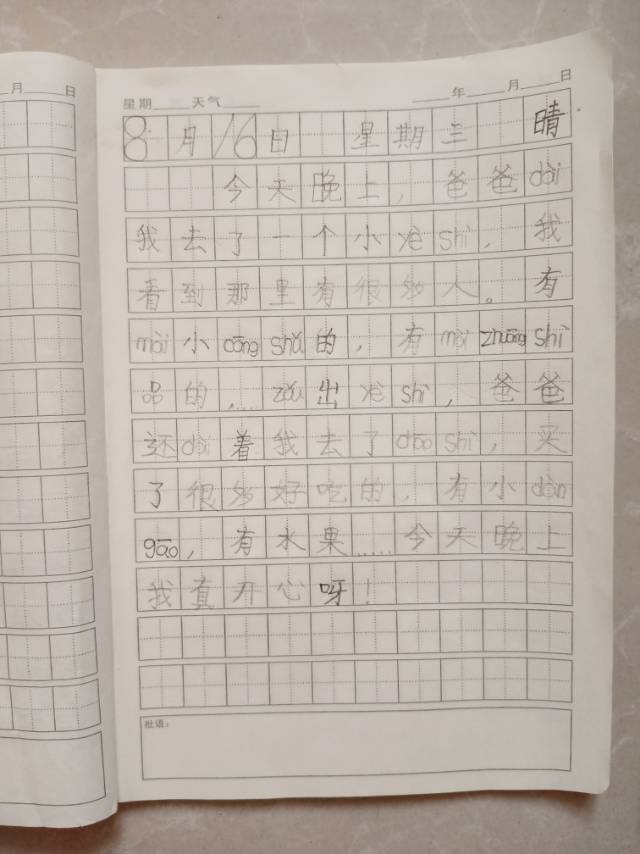 月 日
星期 天气 年 月 日
8月16日 星期三 晴
今天晚上，爸爸dài
我去了一个小yè shì，我
看到那里有很多人。有
mài小cōng shǔ的，有mài zhuāng shì
品的……zǒu出yè shì，爸爸
还dài着我去了chāo shì，买
了很多好吃的，有小dàn
gāo，有水果……今天晚上
我真开心呀！
批语：